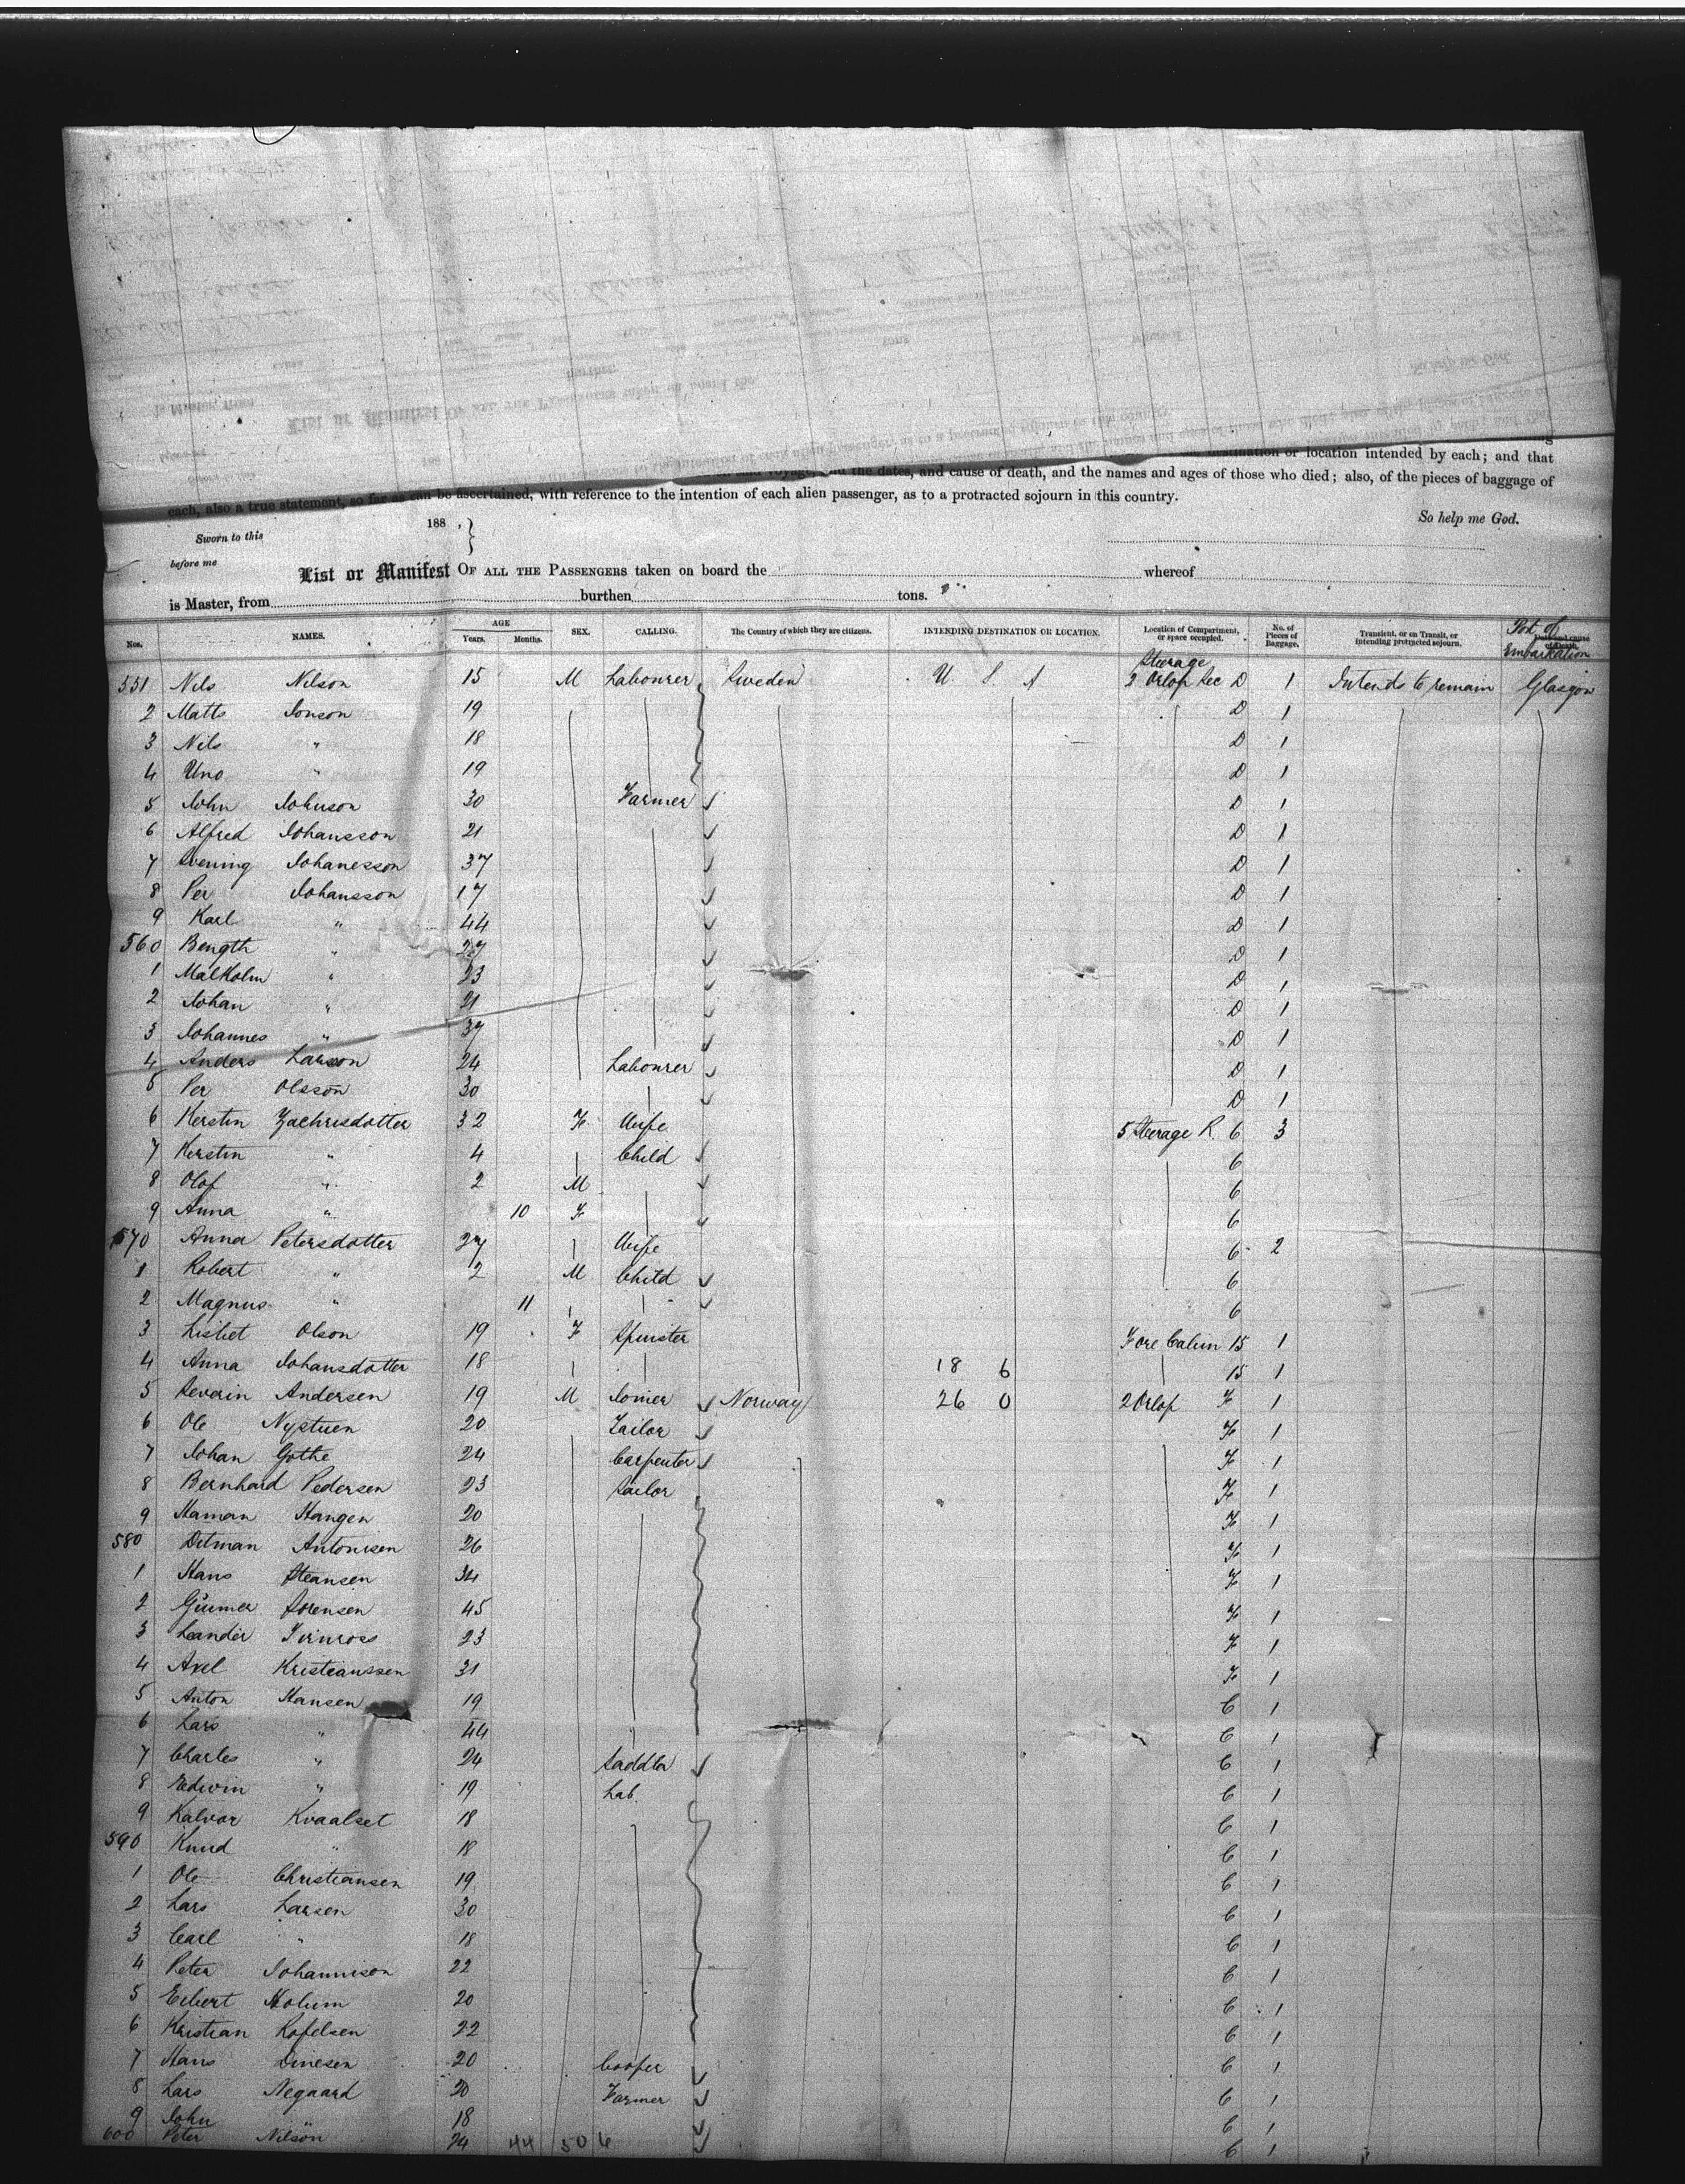 destination or location intended by each; and that
voyage, and the dates, and cause of death, and the names and ages of those who died; also, of the pieces of baggage of
each, also a true statement, so far as can be ascertained, with reference to the intention of each alien passenger, as to a protracted sojourn in this country.
So help me God.
Sworn to this 188 ,
before me
List or Manifest OF ALL THE PASSENGERS taken on board the whereof
is Master, from burthen tons.
Nos. NAMES. AGE Years. Months. SEX. CALLING. The Country of which they are citizens. INTENDING DESTINATION OR LOCATION. Location of Compartment, or space occupied. No. of Pieces of Baggage. Transient, or on Transit, or intending protracted sojourn. Port of Embarkation
551 Nils Nilson 15 M Labourer Sweden U. S. A Steerage 2 Orlop Sec D 1 Intends to remain Glasgow
2 Matts Jonson 19 D 1
3 Nils " 18 D 1
4 Uno " 19 D 1
5 John Johnson 30 Farmer D 1
6 Alfred Johansson 21 D 1
7 Svening Johanesson 37 D 1
8 Per Johansson 17 D 1
9 Karl " 44 D 1
560 Bength " 27 D 1
1 Malkolm " 23 D 1
2 Johan " 21 D 1
3 Johannes " 37 D 1
4 Anders Larson 24 Labourer D 1
5 Per Olsson 30 D 1
6 Kerstin Zachrisdotter 32 F Wife 5 Steerage R. 6 3
7 Kerstin " 4 Child 6
8 Olof " 2 M 6
9 Anna " 10 F 6
570 Anna Petersdotter 27 Wife 6 2
1 Robert " 2 M Child 6
2 Magnus " 11 6
3 Lisbet Olson 19 F Spinster Fore Cabin 15 1
4 Anna Johansdotter 18 18 6 15 1
5 Severin Andersen 19 M Joiner Norway 26 0 2 Orlop F 1
6 Ole Nystuen 20 Tailor F 1
7 Johan Gothe 24 Carpenter F 1
8 Bernhard Pedersen 23 Sailor F 1
9 Haman Hangen 20 F 1
580 Ditman Antonisen 26 F 1
1 Hans Steansen 34 F 1
2 Sorensen 45 F 1
3 Leander 23 F 1
4 Axel Kristianssen 31 F 1
5 Anton Hansen 19 C 1
6 Lars " 44 C 1
7 Charles " 24 Saddler C 1
8 Edwin " 19 Lab. C 1
9 Kalvar Kvaalset 18 C 1
590 Knud " 18 C 1
1 Ole Christiansen 19 C 1
2 Lars Larsen 30 C 1
3 Carl " 18 C 1
4 Peter Johannson 22 C 1
5 Holum 20 C 1
6 Kristian Rofelsen 22 C 1
7 Hans Dinesen 20 Cooper C 1
8 Lars Negaard 20 Farmer C 1
9 John " 18 C 1
600 Peter Nilson 24 44 50 6 C 1